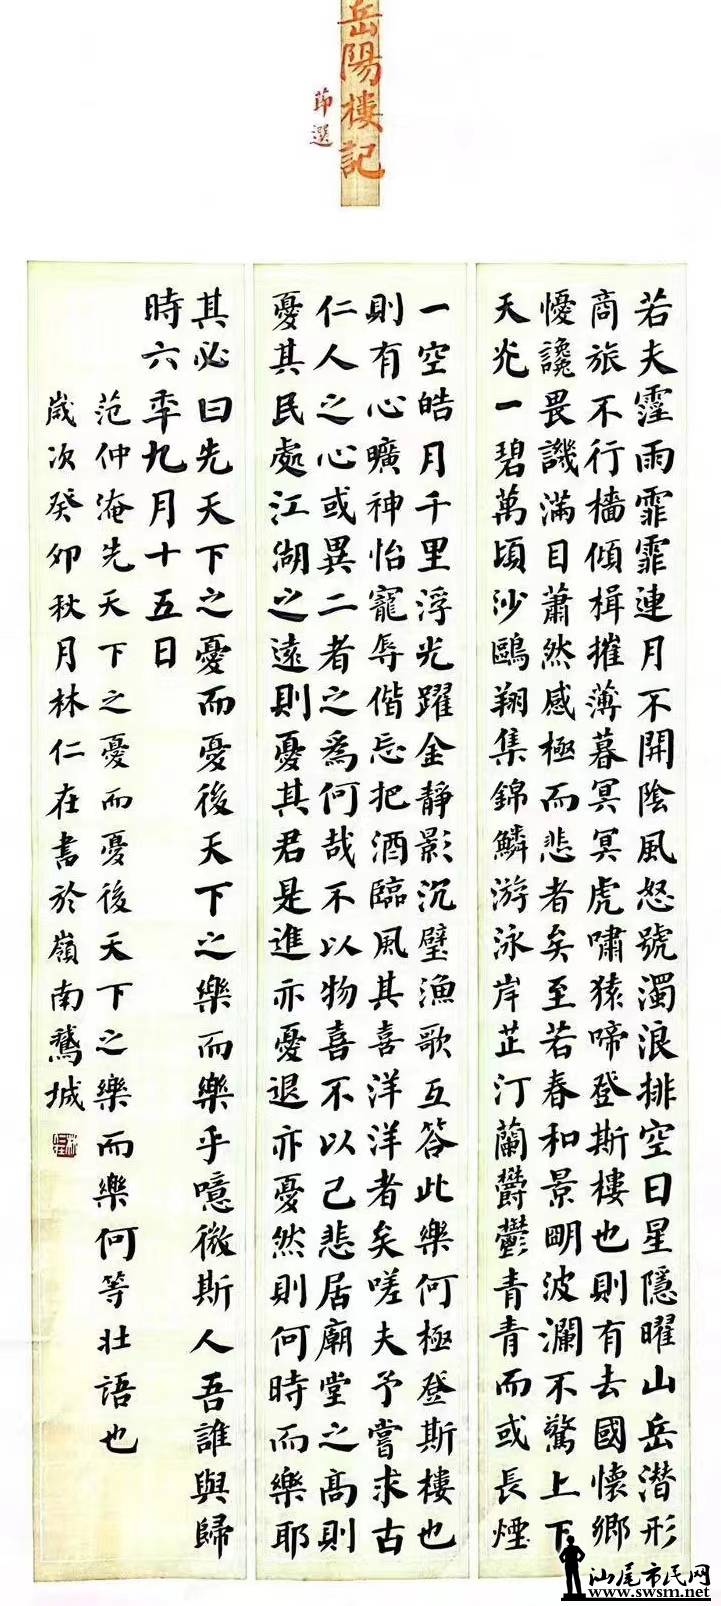 岳陽樓記
節選
若夫霪雨霏霏連月不開陰風怒號濁浪排空日星隱曜山岳潛形
商旅不行檣傾楫摧薄暮冥冥虎嘯猿啼登斯樓也則有去國懷鄉
懮讒畏譏滿目蕭然感極而悲者矣至若春和景明波瀾不驚上下
天光一碧萬頃沙鷗翔集錦鱗游泳岸芷汀蘭欝鬱青青而或長煙
一空皓月千里浮光躍金靜影沉璧漁歌互答此樂何極登斯樓也
則有心曠神怡寵辱偕忘把酒臨風其喜洋洋者矣嗟夫予嘗求古
仁人之心或異二者之為何哉不以物喜不以己悲居廟堂之高則
憂其民處江湖之遠則憂其君是進亦憂退亦憂然則何時而樂耶
其必曰先天下之憂而憂後天下之樂而樂乎噫微斯人吾誰與歸
時六年九月十五日
范仲淹先天下之憂而憂後天下之樂而樂何等壯語也
歲次癸卯秋月林仁在書於嶺南鵞城
汕尾市民网
www.swsm.net